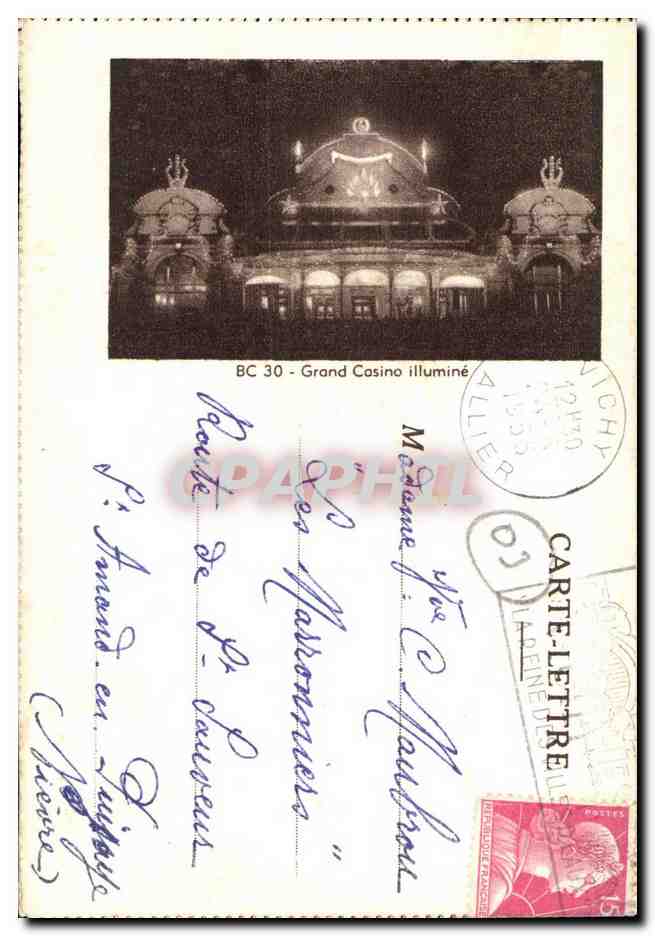 BC 30 - Grand Casino illuminé
VICHY
12H30
1955
ALLIER
CARTE-LETTRE
03
LA REINE DES VILLES
Madame Vve C. Maubrou
"Les Marronniers"
Route de St Sauveur
St Amand-en-Puisaye
(Nièvre)
REPUBLIQUE FRANÇAISE
POSTES
15F
CPAPHIL